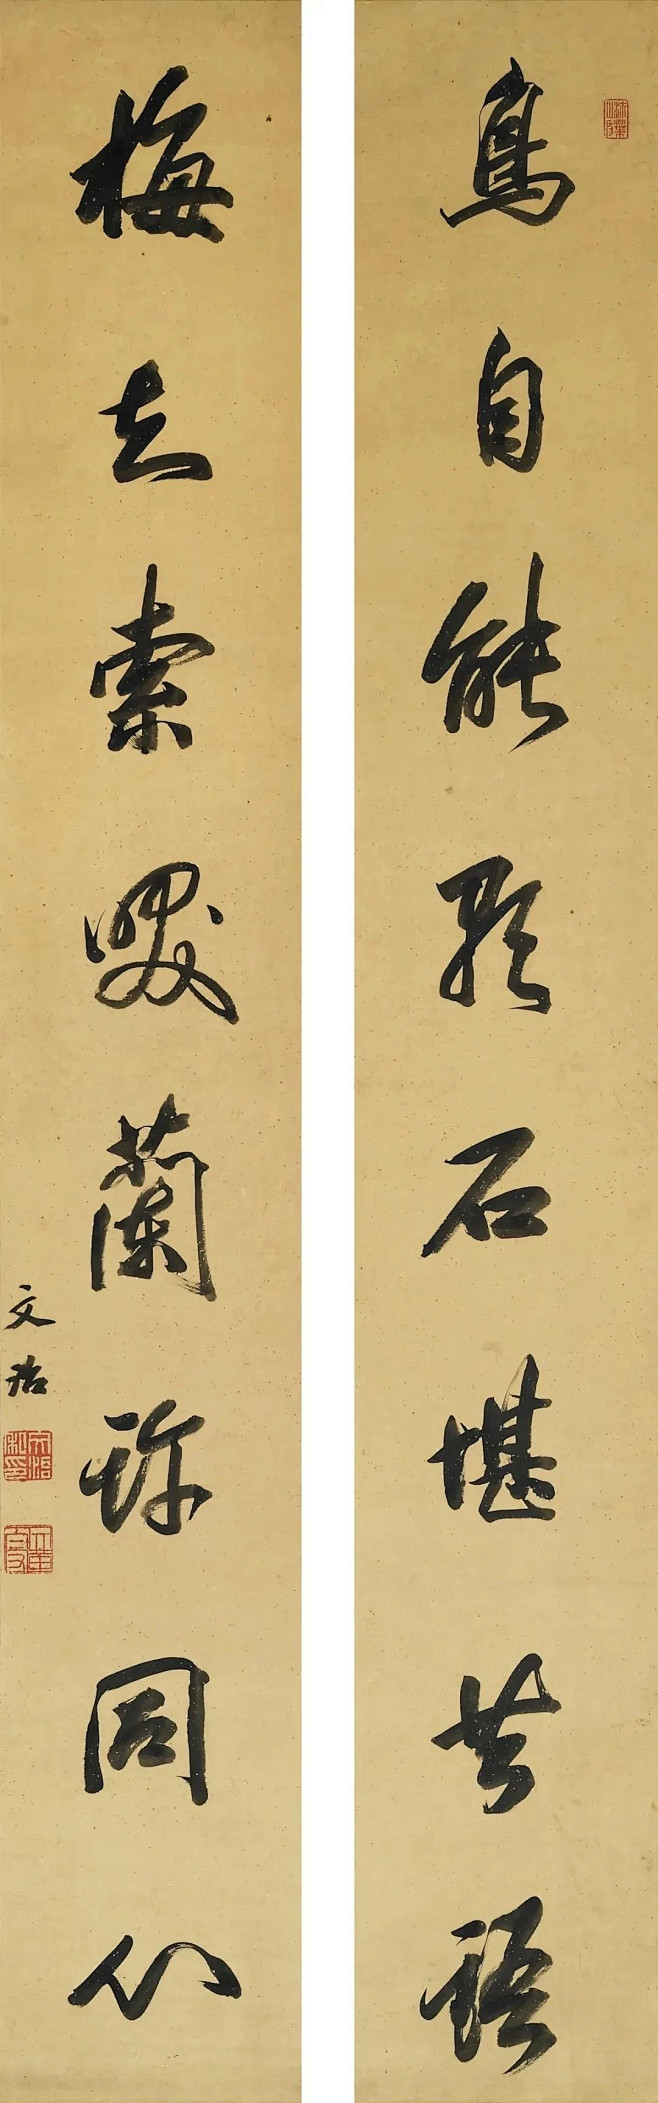 鳥自能歌石堪共語
梅索咲蘭同心
文治